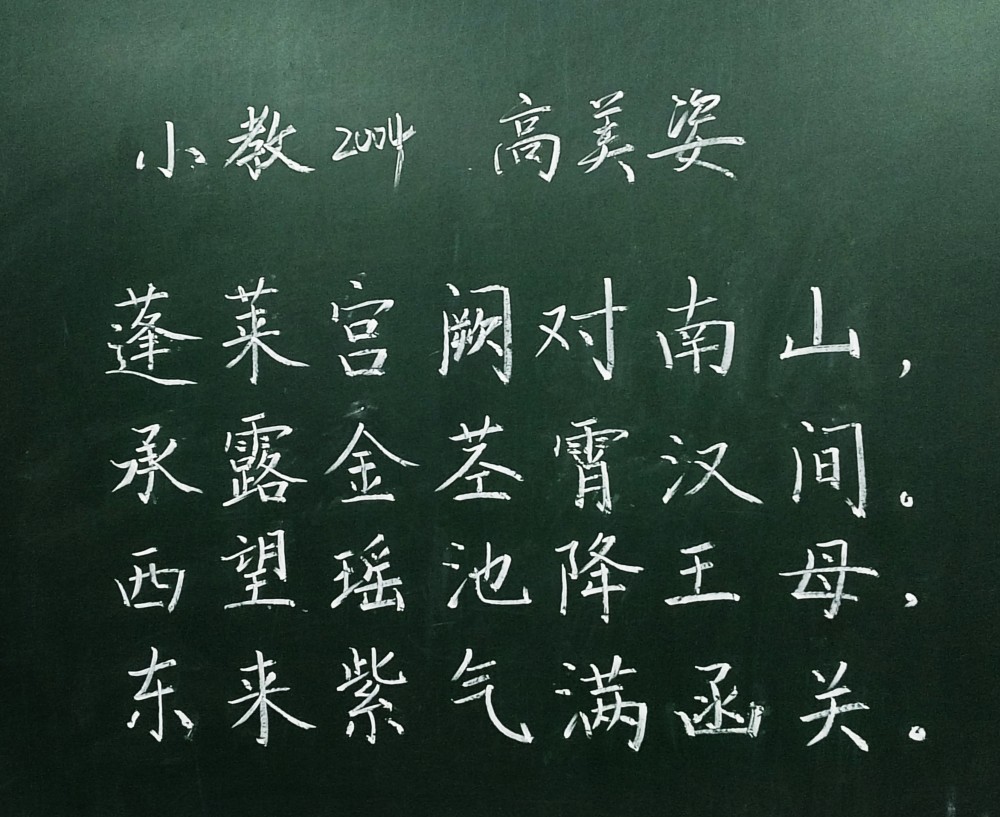 小教2004 高美姿
蓬莱宫阙对南山，
承露金茎霄汉间。
西望瑶池降王母，
东来紫气满函关。